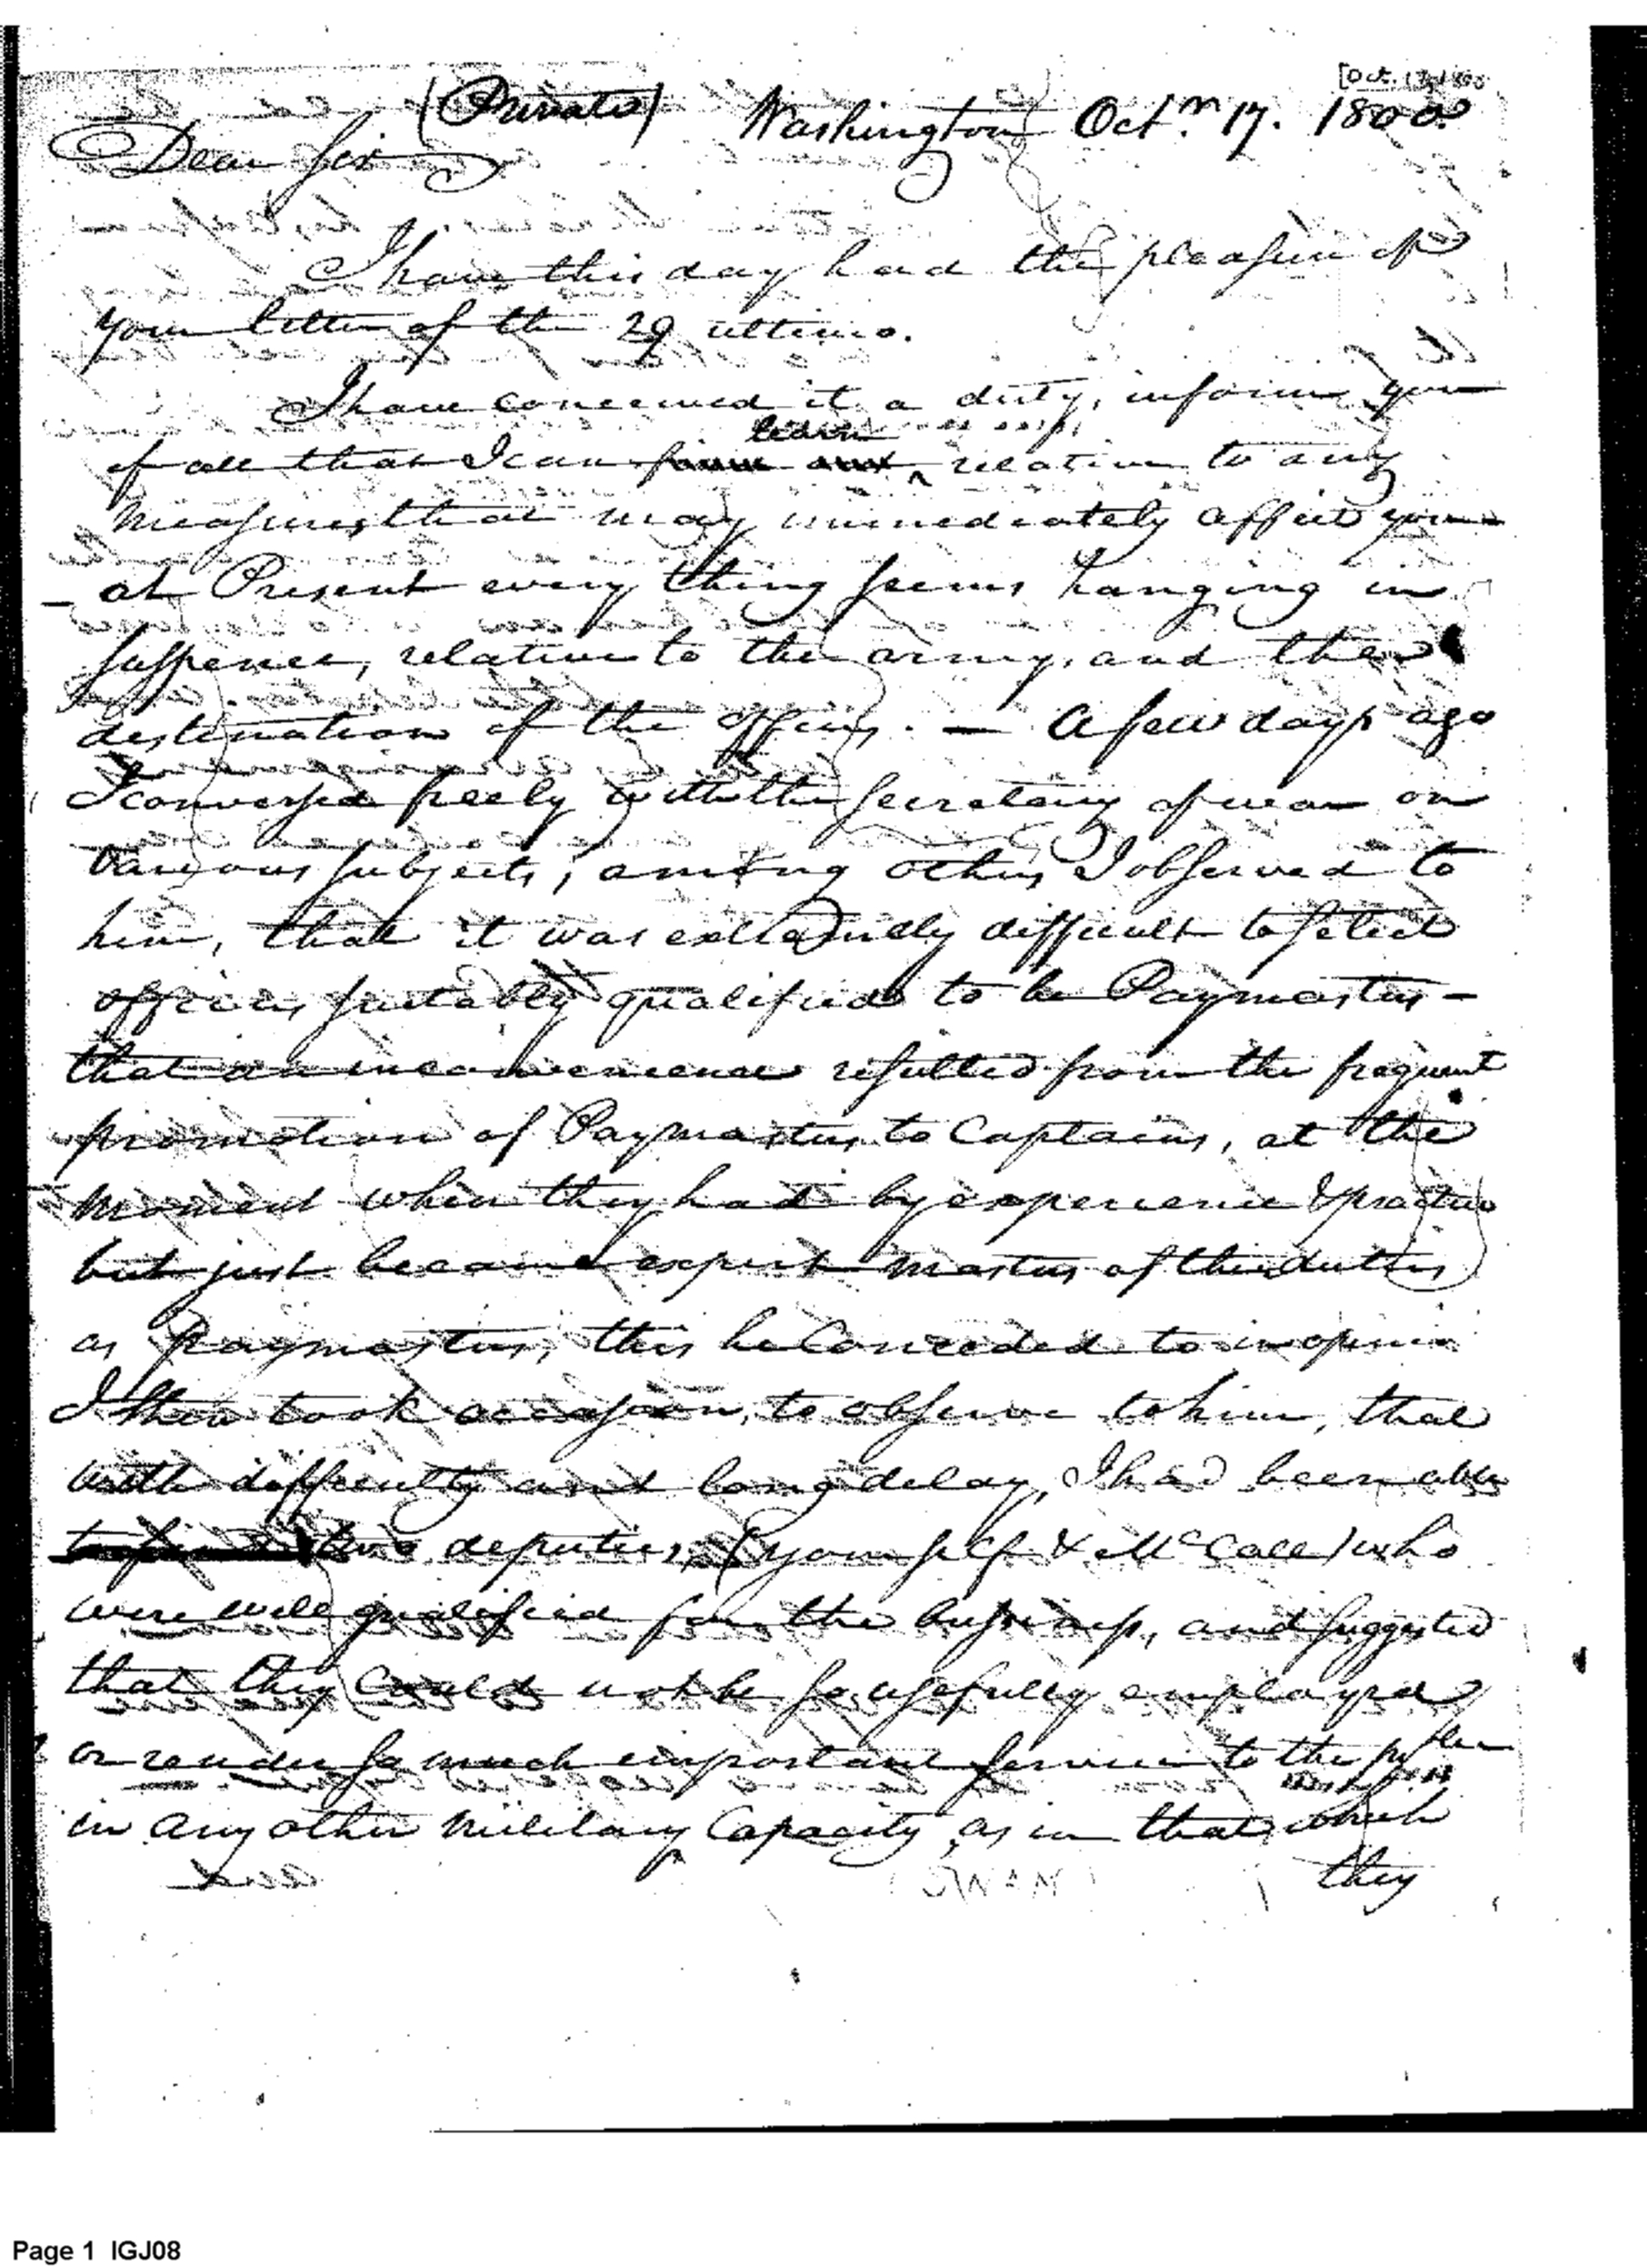 [Oct. 17, 1800]
(Private) Washington Octr. 17. 1800.
Dear Sir
I have this day had the pleasure of
your letter of the 29 ultimo.
I have conceived it a duty, inform you
learn
of all that I can relative to any
measures that may immediately affect you
– at Present every thing seems hanging in
suspence, relative to the army, and the
destination of the officers. — A few days ago
I conversed freely with the Secretary of war on
various subjects, among others I observed to
him, that it was extremely difficult to select
officers suitably qualified to be Paymasters –
that an inconvenience resulted from the frequent
promotion of Paymasters to Captains, at the
moment when they had by experience & practice
but just became expert masters of their duties
as Paymasters, this he Conceded to in opinion
I then took occasion, to observe to him, that
with difficulty and long delay, I had been able
to find two deputies, (yourself & McCall) who
were well qualified for the business, and suggested
that they could not be so usefully employed
or render so much important service to the
in any other military Capacity, as in that which
they
Page 1 IGJ08